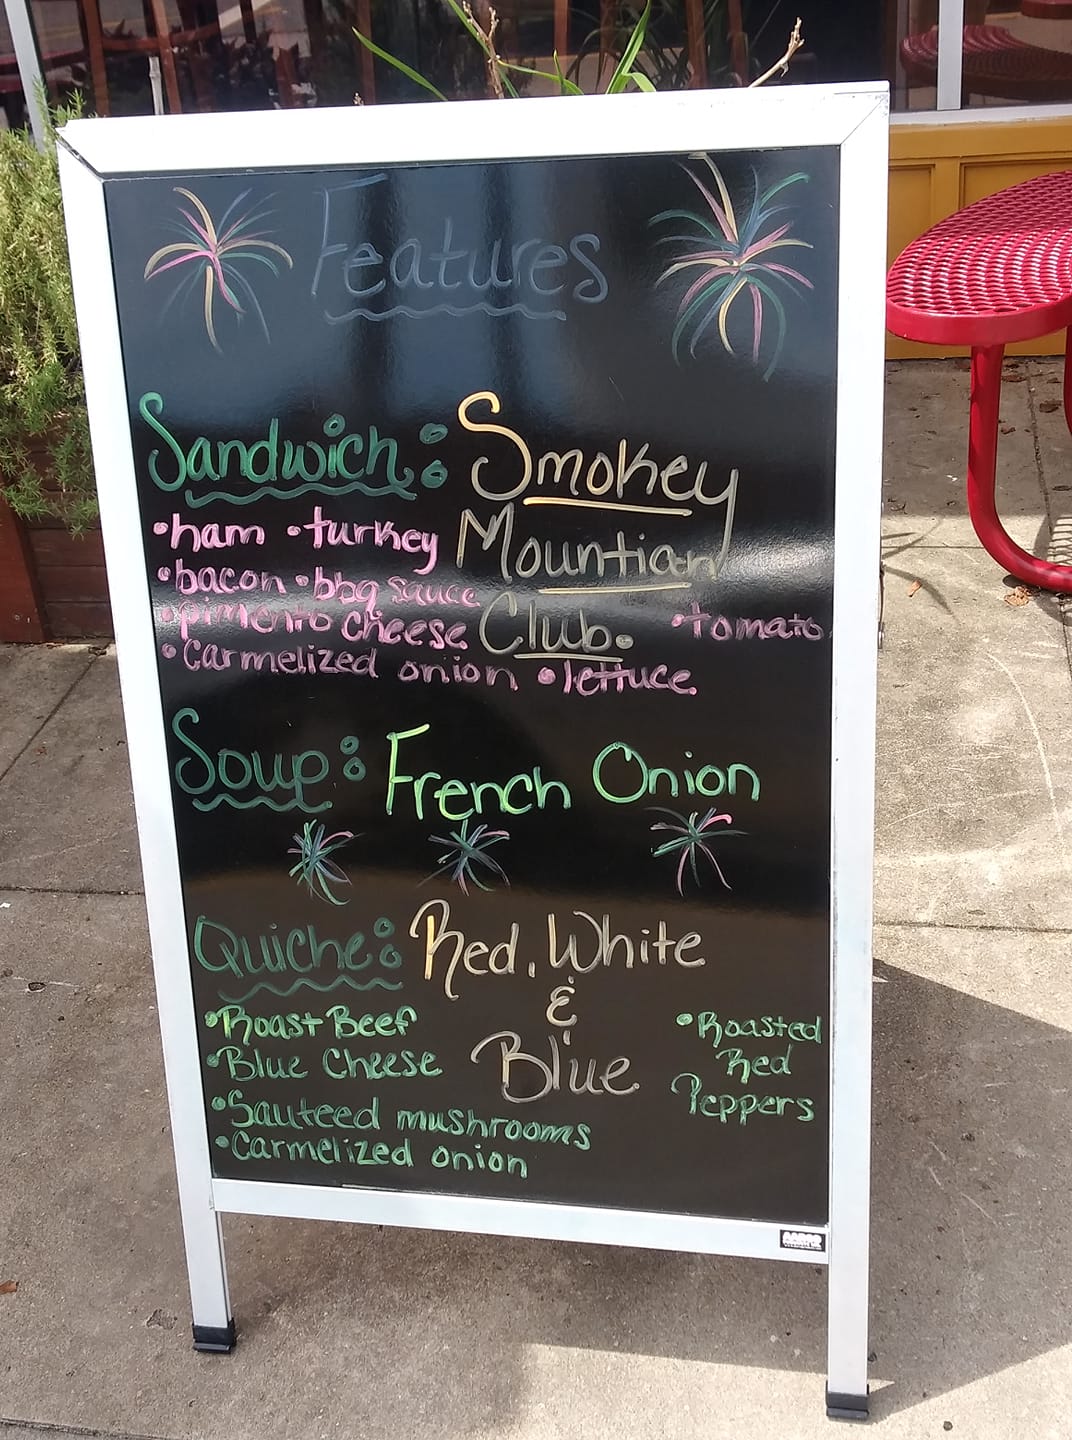 Features
Sandwich: Smokey
Mountian
Club.
•ham •turkey
•bacon •bbq sauce
•pimento cheese
•Carmelized onion •lettuce
•tomato
Soup: French Onion
Quiche: Red, White
&
Blue
•Roast Beef
•Blue Cheese
•Sauteed mushrooms
•Carmelized onion
•Roasted
Red
Peppers